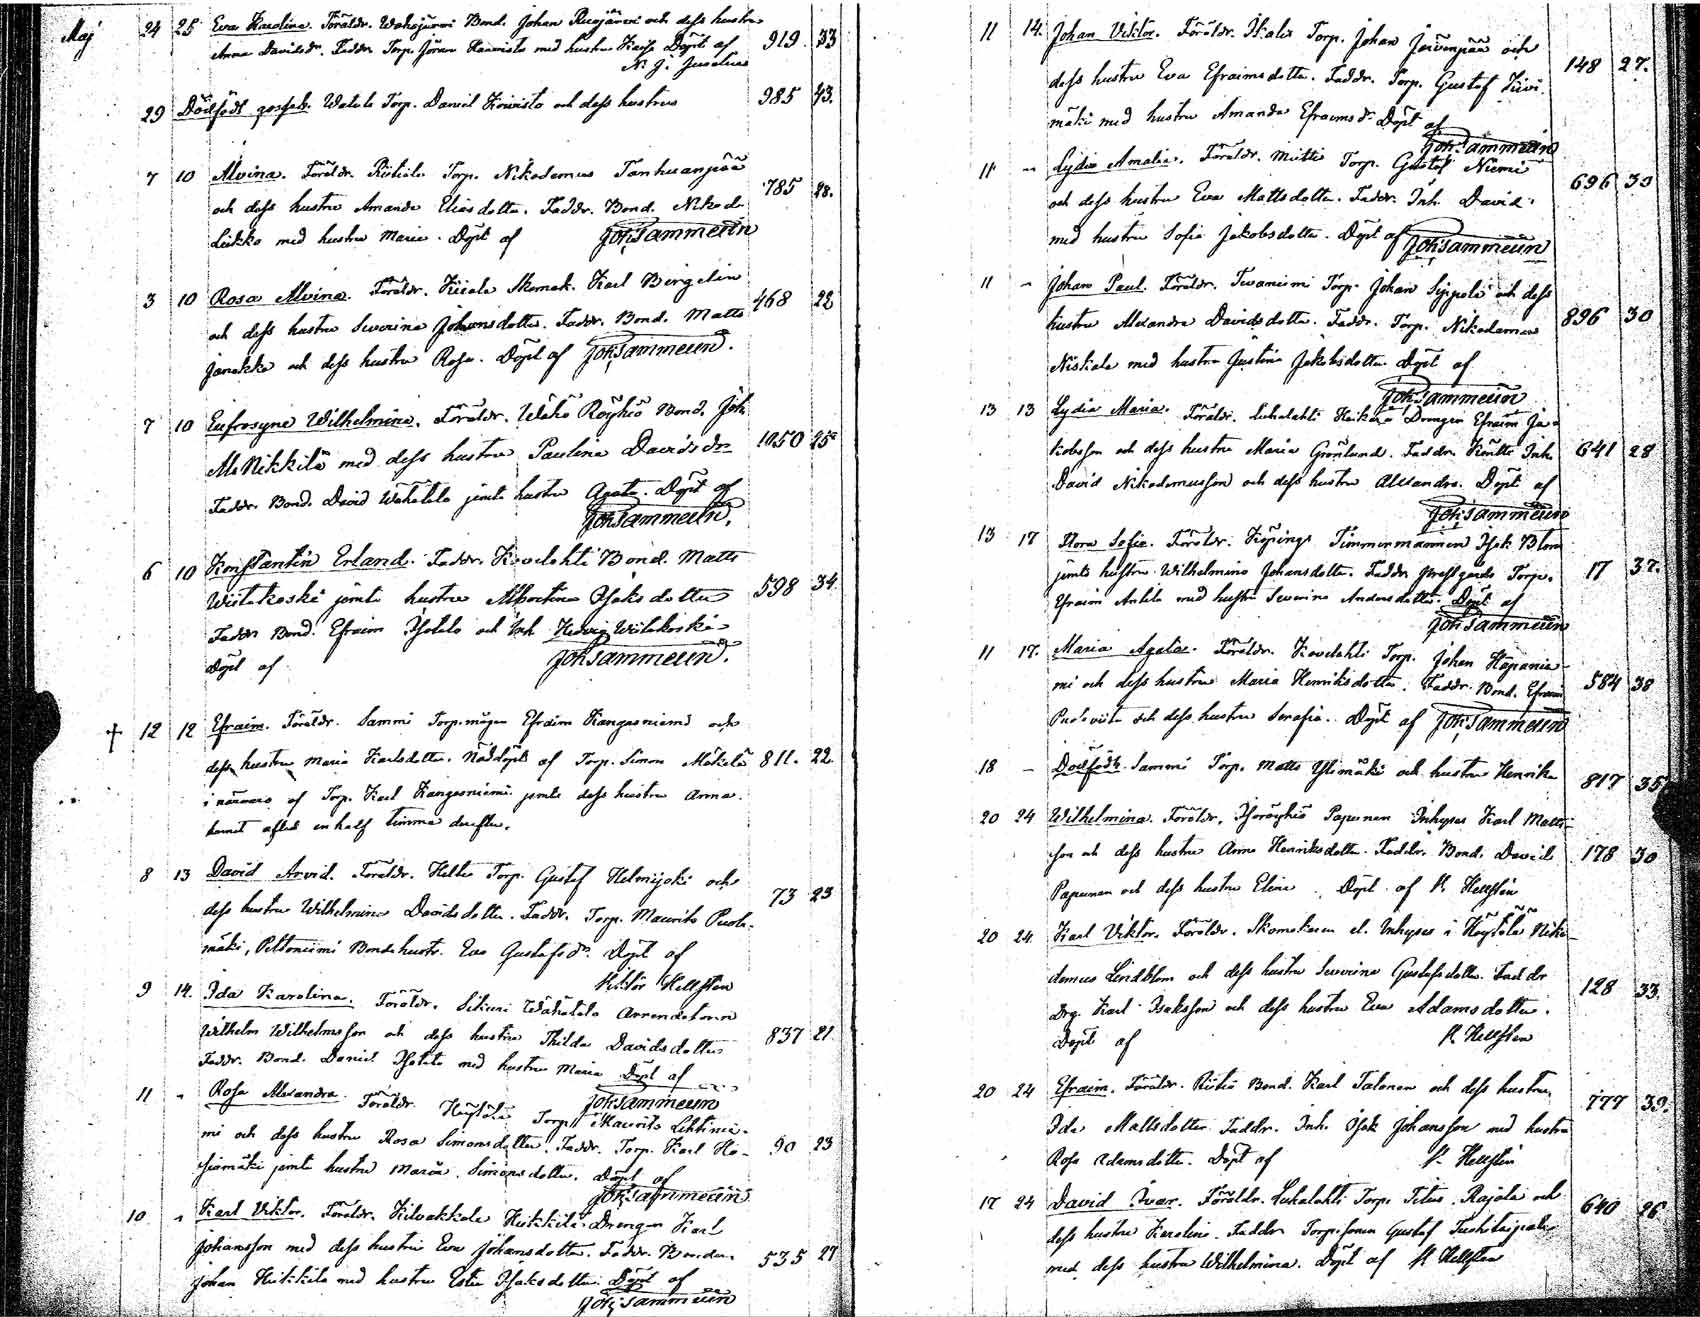 Maj 24 25 Eva Karolina. Föräldr. Wahojärvi Bond. Johan Ruojärvi och dess hustru
Anna Davidsdr. Faddr. Torp. Jöran Hannisto med hustru Kaisa Döpt af 919 33
N. J. Juselius
29 Dödfödt gosseb. Watula Torp. Daniel Koivisto och dess hustru 985 43.
7 10 Alvina. Föräldr. Riitiala Torp. Nikodemus Tanhuanpää
och dess hustru Amanda Eliasdotter. Faddr. Bond. Nikod. 785 28.
Liukko med hustru Maria. Döpt af Joh. Sammelin
3 10 Rosa Alvina. Föräldr. Skomak. Karl Bergelin
och dess hustru Severina Johansdotter. Faddr. Bond. Matts 468 22
Janakka och dess hustru Rosa. Döpt af Joh. Sammelin.
7 10 Eufrosyne Wilhelmina. Föräldr. Wähä Röyhiö Bond. Joh.
Nikkilä med dess hustru Paulina Davidsdr 1050 25
Faddr. Bond. David Wähätalo jemte hustru Agata. Döpt af
Joh. Sammelin.
6 10 Konstantin Erland. Faddr. Kovelahti Bond. Matts
Wiitakoski jemte hustru Albertina Isaksdotter 598 34
Faddr. Bond. Efraim Isotalo och Inh. Hedvig Wiitakoski
Döpt af Joh. Sammelin.
† 12 12 Efraim. Föräldr. Sammi Torp.mågen Efraim Kangasniemi och
dess hustru Maria Karlsdotter. Nöddöpt af Torp. Simon Mäkelä 811. 22.
i närvaro af Torp. Karl Kangasniemi jemte dess hustru Anna.
barnet afled en half timma derefter.
8 13 David Arvid. Föräldr. Torp. Gustaf Helmijoki och
dess hustru Wilhelmina Davidsdotter. Faddr. Torp. Maurits 73 23
mäki, Peltoniemi Bondehustr. Eva Gustafsdr. Döpt af
Viktor Hellsten
9 14. Ida Karolina. Föräldr. Sikuri Wähätalo Arrendatorn
Wilhelm Wilhelmsson och dess hustru Thilda Davidsdotter 837 21
Faddr. Bond. Daniel Isotalo med hustru Maria Döpt af
Joh. Sammelin
11 " Rosa Alexandra. Föräldr. Höytölä Torp. Maurits Lehtinie-
mi och dess hustru Rosa Simonsdotter. Faddr. Torp. Karl 90 23
jemte hustru Maria Simonsdotter. Döpt af
Joh. Sammelin
10 " Karl Viktor. Föräldr. Kilvakkala Heikkilä Drengen Karl
Johansson med dess hustru Eva Johansdotter. Faddr. Bonden 535 27
Johan Heikkilä med hustru Ester Isaksdotter. Döpt af
Joh. Sammelin
11 14. Johan Viktor. Föräldr. Torp. Johan Järvenpää och
dess hustru Eva Efraimsdotter. Faddr. Torp. Gustaf Kivi- 148 27.
mäki med hustru Amanda Efraimsdr. Döpt af
Joh. Sammelin
11 " Lydia Amalia. Föräldr. Miettis Torp. Gustaf Niemi
och dess hustru Eva Mattsdotter. Faddr. Inh. David 696 33
med hustru Sofia Jakobsdotter. Döpt af Joh. Sammelin
11 " Johan Paul. Föräldr. Tevaniemi Torp. Johan Seppelä och dess
hustru Alexandra Davidsdotter. Faddr. Torp. Nikodemus 896 30
Niskala med hustru Justina Jakobsdotter. Döpt af
Joh. Sammelin
13 13 Lydia Maria. Föräldr. Luhalahti Heikkilä Drengen Efraim Ja-
kobsson och dess hustru Maria Grönlund. Faddr. Inh. 641 28
David Nikodemusson och dess hustru Alexandra. Döpt af
Joh. Sammelin
13 17 Nora Sofia. Föräldr. Köpings Timmermannen Isak Blom
jemte hustru Wilhelmina Johansdotter. Faddr. Prestgårds Torp. 17 37.
Efraim Anttila med hustru Severina Andersdotter. Döpt af
Joh. Sammelin
11 17. Maria Agata. Föräldr. Kovelahti Torp. Johan Haapanie-
mi och dess hustru Maria Henriksdotter. Faddr. Bond. Efraim 584 38
och dess hustru Serafia. Döpt af Joh. Sammelin
18 — Dödfödt. Sammi Torp. Matts Ylimäki och hustru Henrika 817 35
20 24 Wilhelmina. Föräldr. Isoröyhiö Papunen Inhyses Karl Matts-
son och dess hustru Anna Henriksdotter. Faddr. Bond. David 178 30
Papunen och dess hustru Elina. Döpt af V. Hellstén
20 24. Karl Viktor. Föräldr. Skomakaren el. Inhyses i Höytölä Niko-
demus Lindblom och dess hustru Severina Gustafsdotter. Faddr
Drg. Karl Isaksson och dess hustru Eva Adamsdotter. 128 33.
Döpt af V. Hellsten
20 24 Efraim. Föräldr. Riitio Bond. Karl Talonen och dess hustru
Ida Mattsdotter. Faddr. Inh. Isak Johansson med hustru 777 39.
Rosa Adamsdotter. Döpt af V. Hellstén
17 24 David Ivar. Föräldr. Luhalahti Torp. Titus Rajala och
dess hustru Karolin. Faddr. Torp.sonen Gustaf 640 26
med dess hustru Wilhelmina. Döpt af V. Hellsten